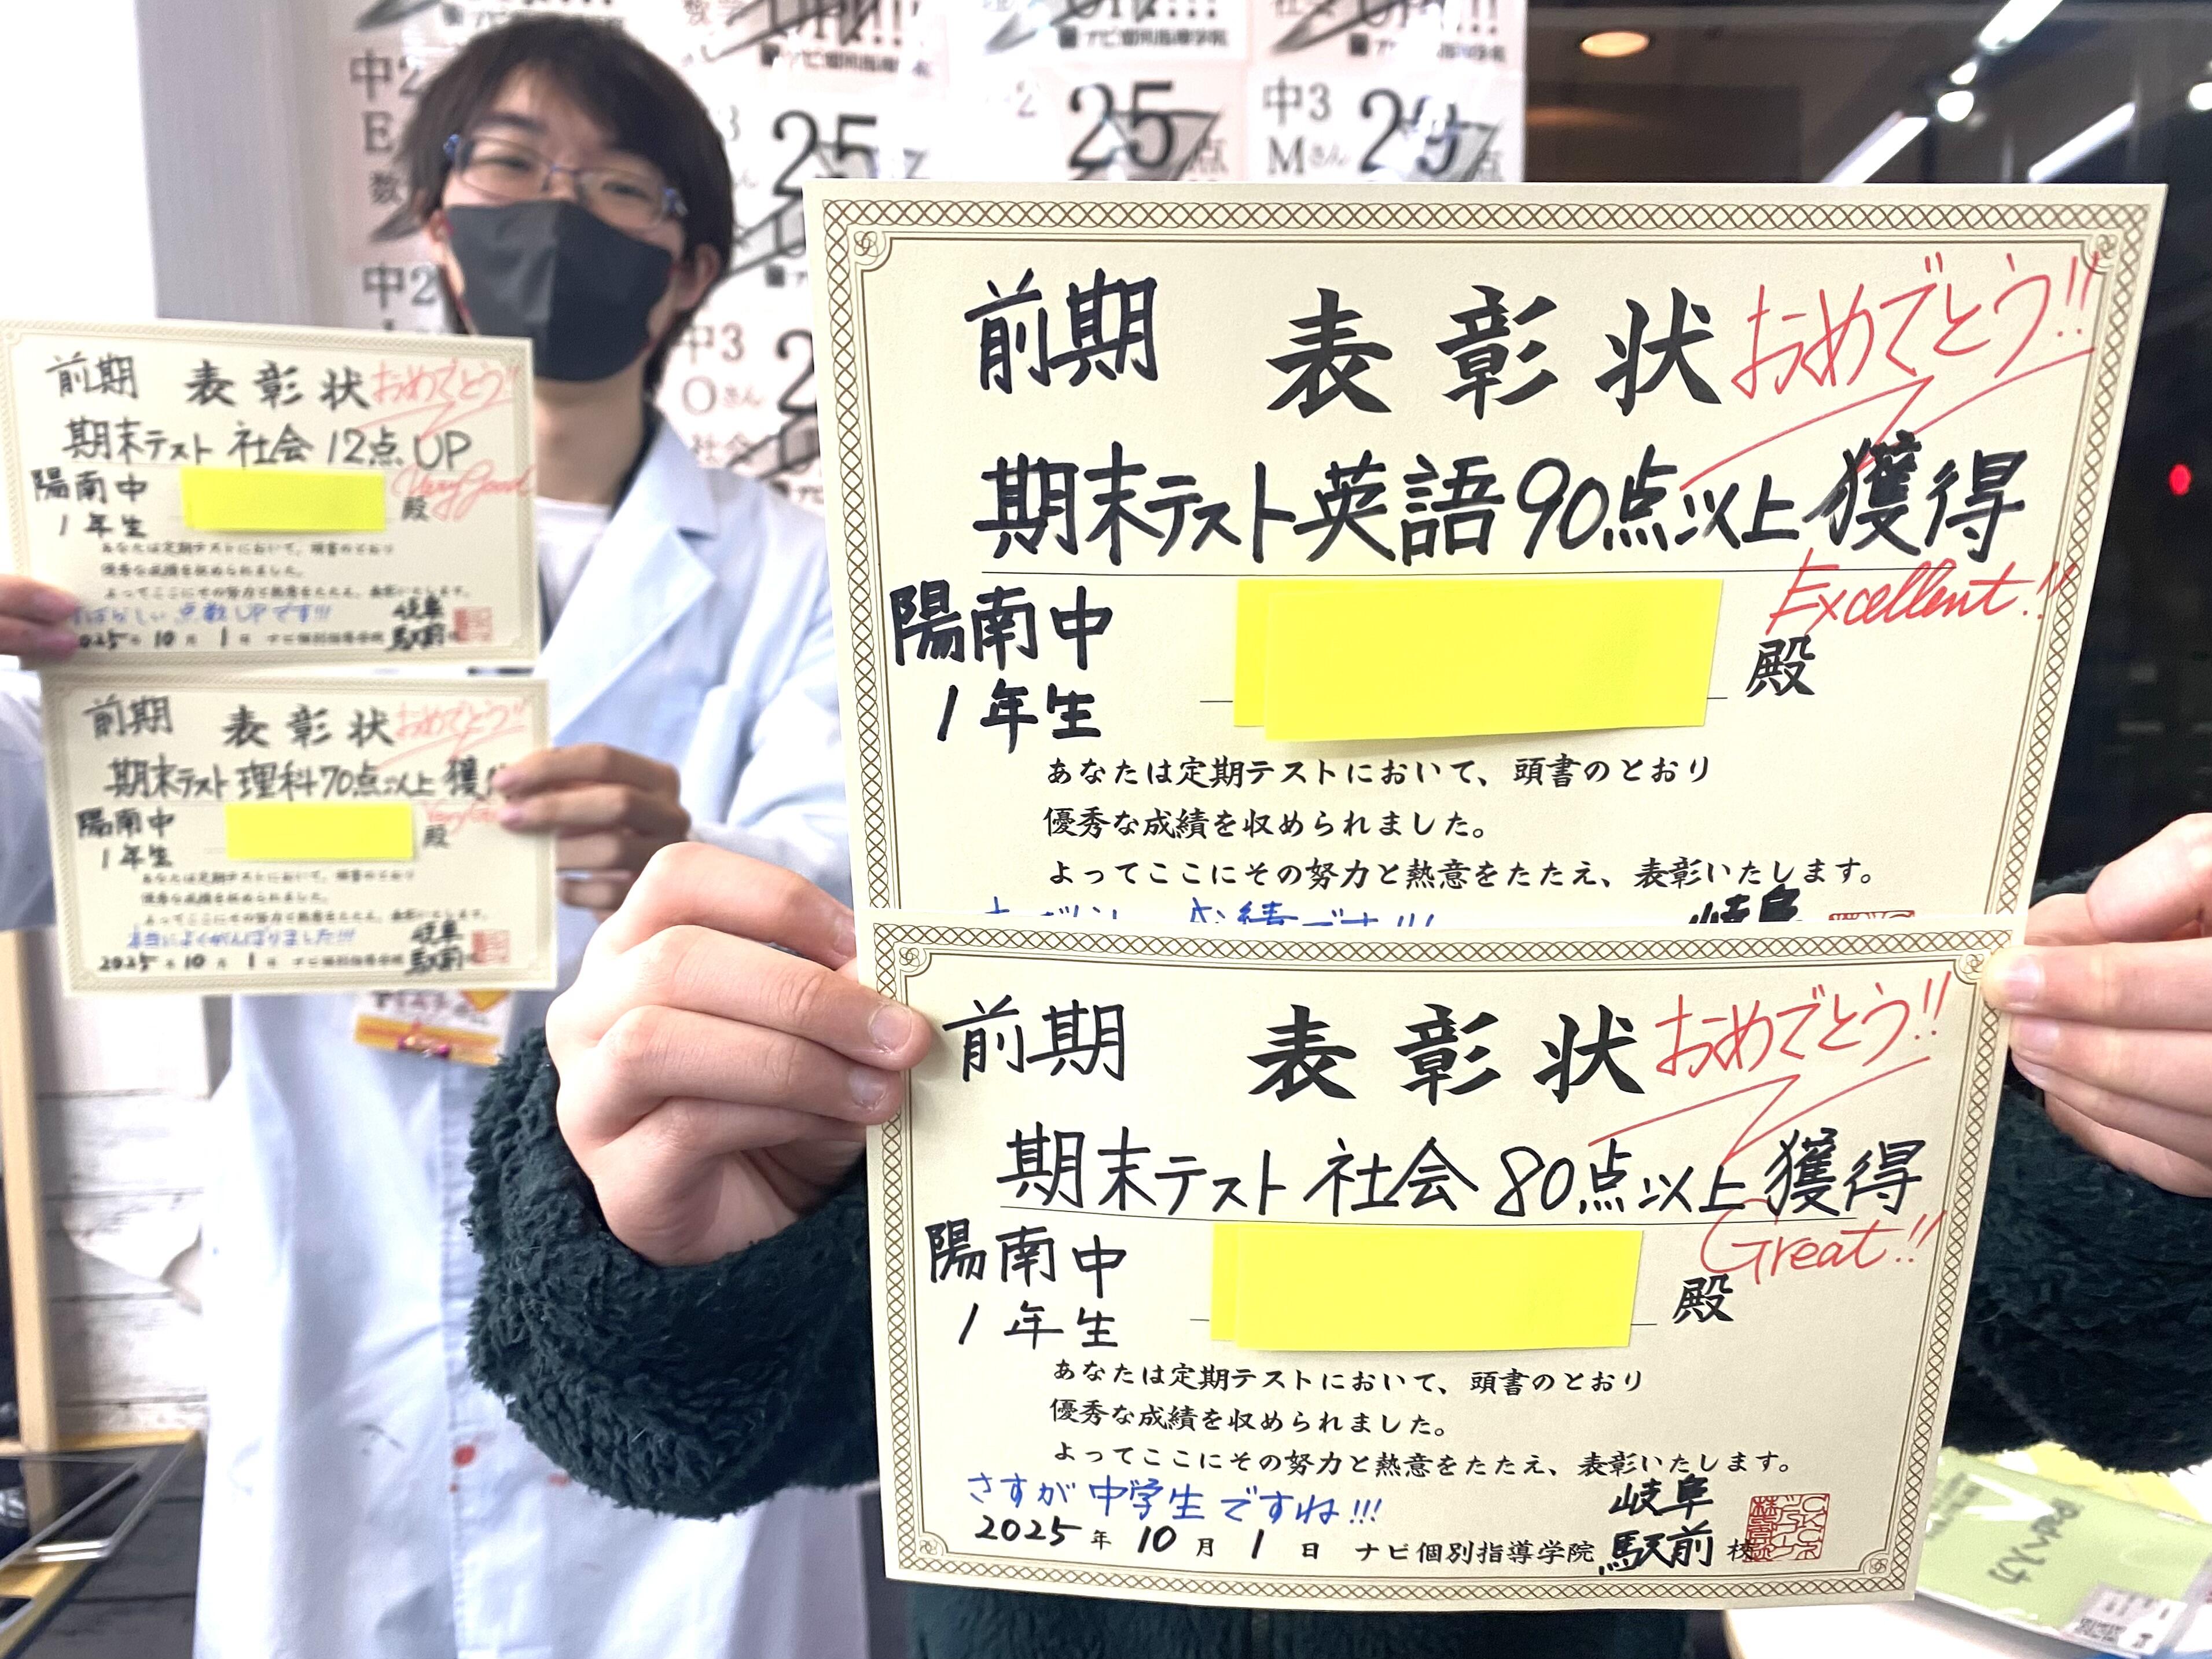 前期 表彰状 おめでとう!!
期末テスト 社会 12点 UP
Very Good
陽南中
1年生
殿
あなたは定期テストにおいて、頭書のとおり
優秀な成績を収められました。
よってここにその努力と熱意をたたえ、表彰いたします。
ばらしい 点数UPです!!!
岐阜
2025年 10月 1日 ナビ個別指導学院 駅前
前期 表彰状 おめでとう!!
期末テスト 理科 70点以上 獲
陽南中
1年生
殿
Very
あなたは定期テストにおいて、頭書のとおり
優秀な成績を収められました。
よってここにその努力と熱意をたたえ、表彰いたします。
本当によくがんばりました!!!
岐阜
2025年 10月 1日 ナビ個別指導学院 駅前
中2
E
数
中2
25
25
点
中3
Mさん
29
点
中3
Oさん
2
社会
ナビ個別指導学院
前期 表彰状 おめでとう!!
期末テスト英語90点以上獲得
Excellent!!
陽南中
1年生
殿
あなたは定期テストにおいて、頭書のとおり
優秀な成績を収められました。
よってここにその努力と熱意をたたえ、表彰いたします。
岐阜
前期 表彰状 おめでとう!!
期末テスト 社会 80点以上獲得
Great!!
陽南中
1年生
殿
あなたは定期テストにおいて、頭書のとおり
優秀な成績を収められました。
よってここにその努力と熱意をたたえ、表彰いたします。
さすが中学生ですね!!!
岐阜
2025年 10月 1日 ナビ個別指導学院 駅前 校